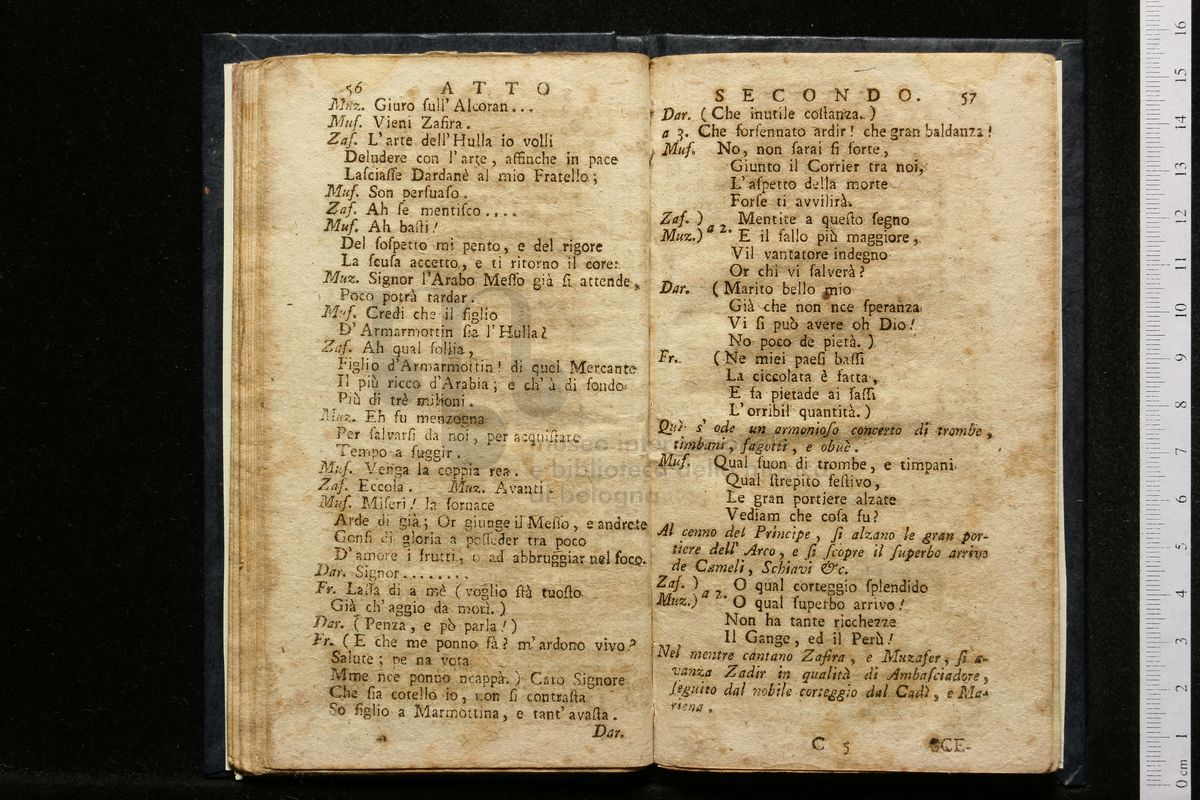 56 ATTO
Muz. Giuro ſull' Alcoran...
Muſ. Vieni Zafira.
Zaf. L'arte dell'Hulla io volli
Deludere con l'arte, affinche in pace
Laſciaſſe Dardanè al mio Fratello;
Muſ. Son perſuaſo.
Zaf. Ah ſe mentiſco....
Muſ. Ah baſti!
Del ſoſpetto mi pento, e del rigore
La ſcuſa accetto, e ti ritorno il core:
Muz. Signor l'Arabo Meſſo già ſi attende,
Poco potrà tardar.
Muſ. Credi che il figlio
D'Armarmottin ſia l'Hulla?
Zaf. Ah qual follia,
Figlio d'Armarmottin! di quel Mercante
Il più ricco d'Arabia; e ch'à di fondo
Più di trè milioni.
Muz. Eh fu menzogna
Per ſalvarſi da noi, per acquiſtare
Tempo a fuggir.
Muſ. Venga la coppia rea.
Zaf. Eccola. Muz. Avanti.
Muſ. Miſeri! la fornace
Arde di già; Or giunge il Meſſo, e andrete
Gonfi di gloria a poſſeder tra poco
D'amore i frutti, o ad abbruggiar nel foco.
Dar. Signor........
Fr. Laſſa di a mè (voglio ſtà tuoſto
Già ch'aggio da morì.)
Dar. (Penza, e pò parla!)
Fr. (E che me ponno fà? m'ardono vivo?
Salute; pe na vota
Mme nce ponno ncappà.) Caro Signore
Che ſia cotello io, non ſi contraſta
So figlio a Marmottina, e tant'avaſta.
Dar.
SECONDO. 57
Dar. (Che inutile coſtanza.)
a 3. Che forſennato ardir! che gran baldanza!
Muſ. No, non ſarai ſi forte,
Giunto il Corrier tra noi,
L'aſpetto della morte
Forſe ti avvilirà.
Zaf. ) Mentite a queſto ſegno
Muz.) a 2. E il fallo più maggiore,
Vil vantatore indegno
Or chi vi ſalverà?
Dar. (Marito bello mio
Già che non nce ſperanza
Vi ſi può avere oh Dio!
No poco de pietà.)
Fr. (Ne miei paeſi baſſi
La ciccolata è fatta,
E fa pietade ai ſaſſi
L'orribil quantità.)
Quì s'ode un armonioſo concerto di trombe,
timbani, fagotti, e obuè.
Muſ. Qual ſuon di trombe, e timpani
Qual ſtrepito feſtivo,
Le gran portiere alzate
Vediam che coſa fu?
Al cenno del Principe, ſi alzano le gran por-
tiere dell'Arco, e ſi ſcopre il ſuperbo arrivo
de Cameli, Schiavi &c.
Zaf. ) O qual corteggio ſplendido
Muz.) a 2. O qual ſuperbo arrivo!
Non ha tante ricchezze
Il Gange, ed il Perù!
Nel mentre cantano Zafira, e Muzafer, ſi a-
vanza Zadir in qualità di Ambaſciadore,
ſeguito dal nobile corteggio dal Cadì, e Ma-
riena.
C 5 SCE-